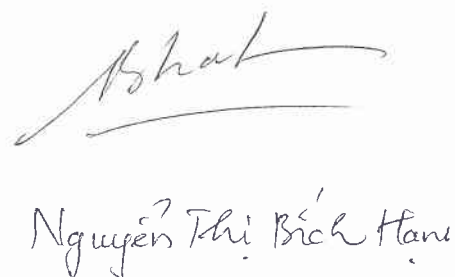 Nguyễn Thị Bích Hạnh